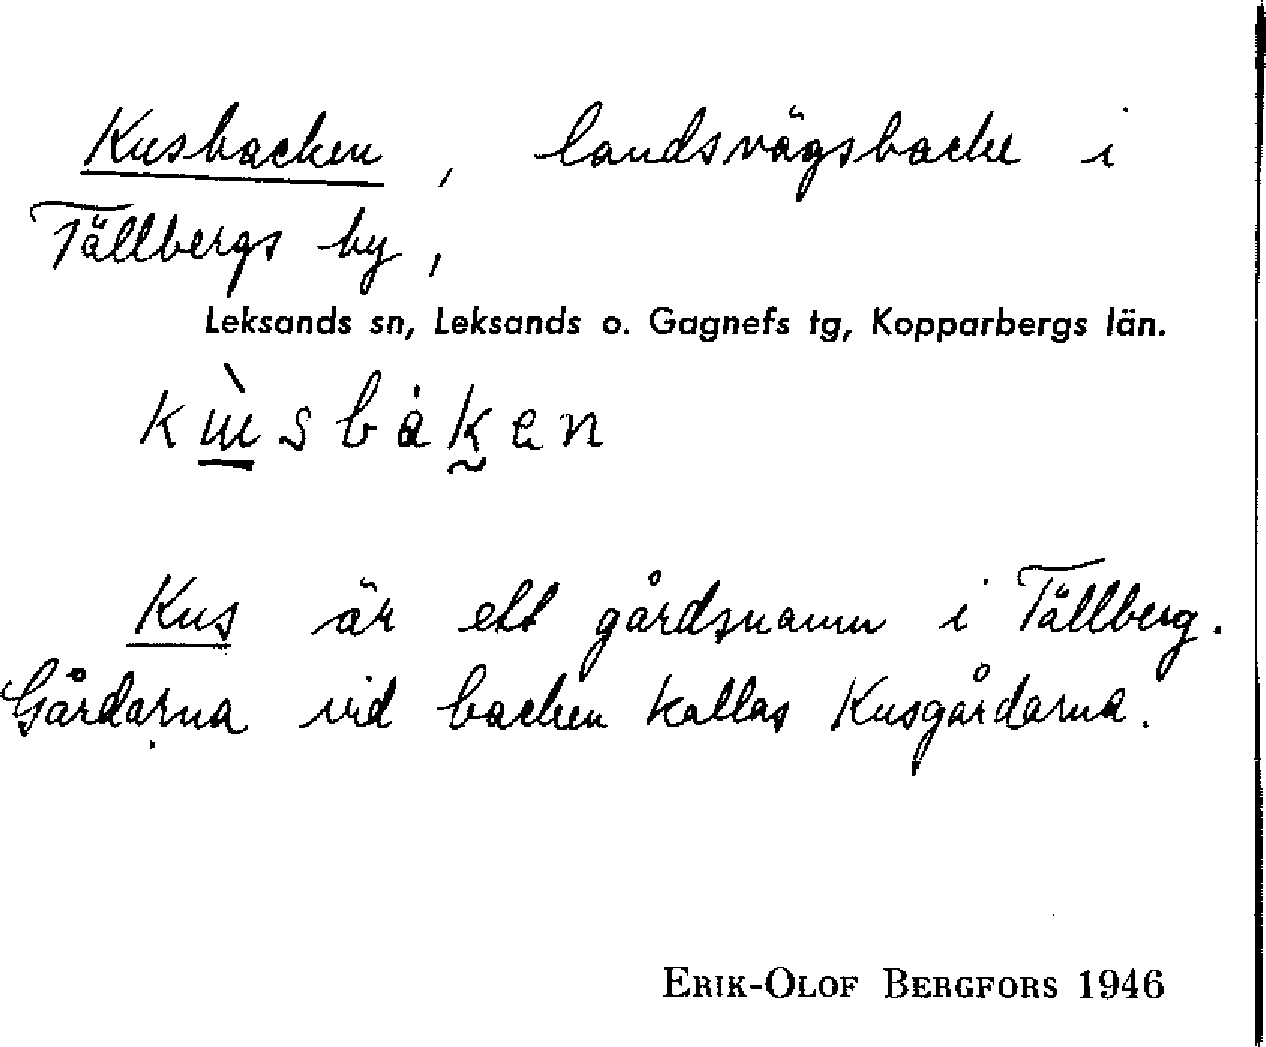 Kusbacken, landsvägsbacke i
Tällbergs by,
Leksands sn, Leksands o. Gagnefs tg, Kopparbergs län.
Kus är ett gårdsnamn i Tällberg.
Gårdarna vid backen kallas Kusgårdarna.
ERIK-OLOF BERGFORS 1946